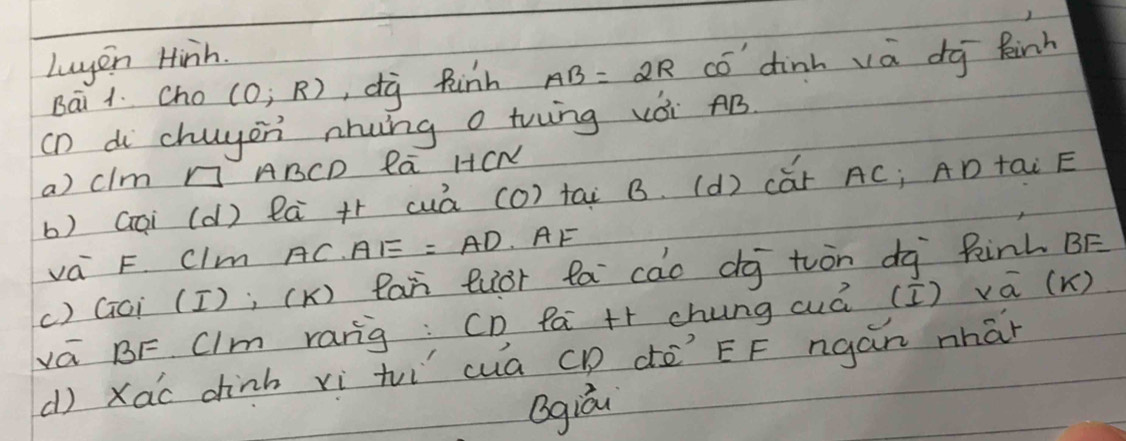 Luyện Hình.
Bài 1. Cho (O; R), đg kính AB = 2R cố định và đg kính
CD di chuyển nhưng o trùng với AB.
a) c/m □ ABCD là HCN
b) Gọi (d) là tt của (O) tại B. (d) cắt AC; AD tại E
và F. C/m AC.AE = AD.AF
c) Gọi (I); (K) lần lượt là các đg tròn đg kính BE
và BF. C/m rằng: CD là tt chung của (I) và (K).
d) Xác định vị trí của CD để EF ngắn nhất
Bgiải